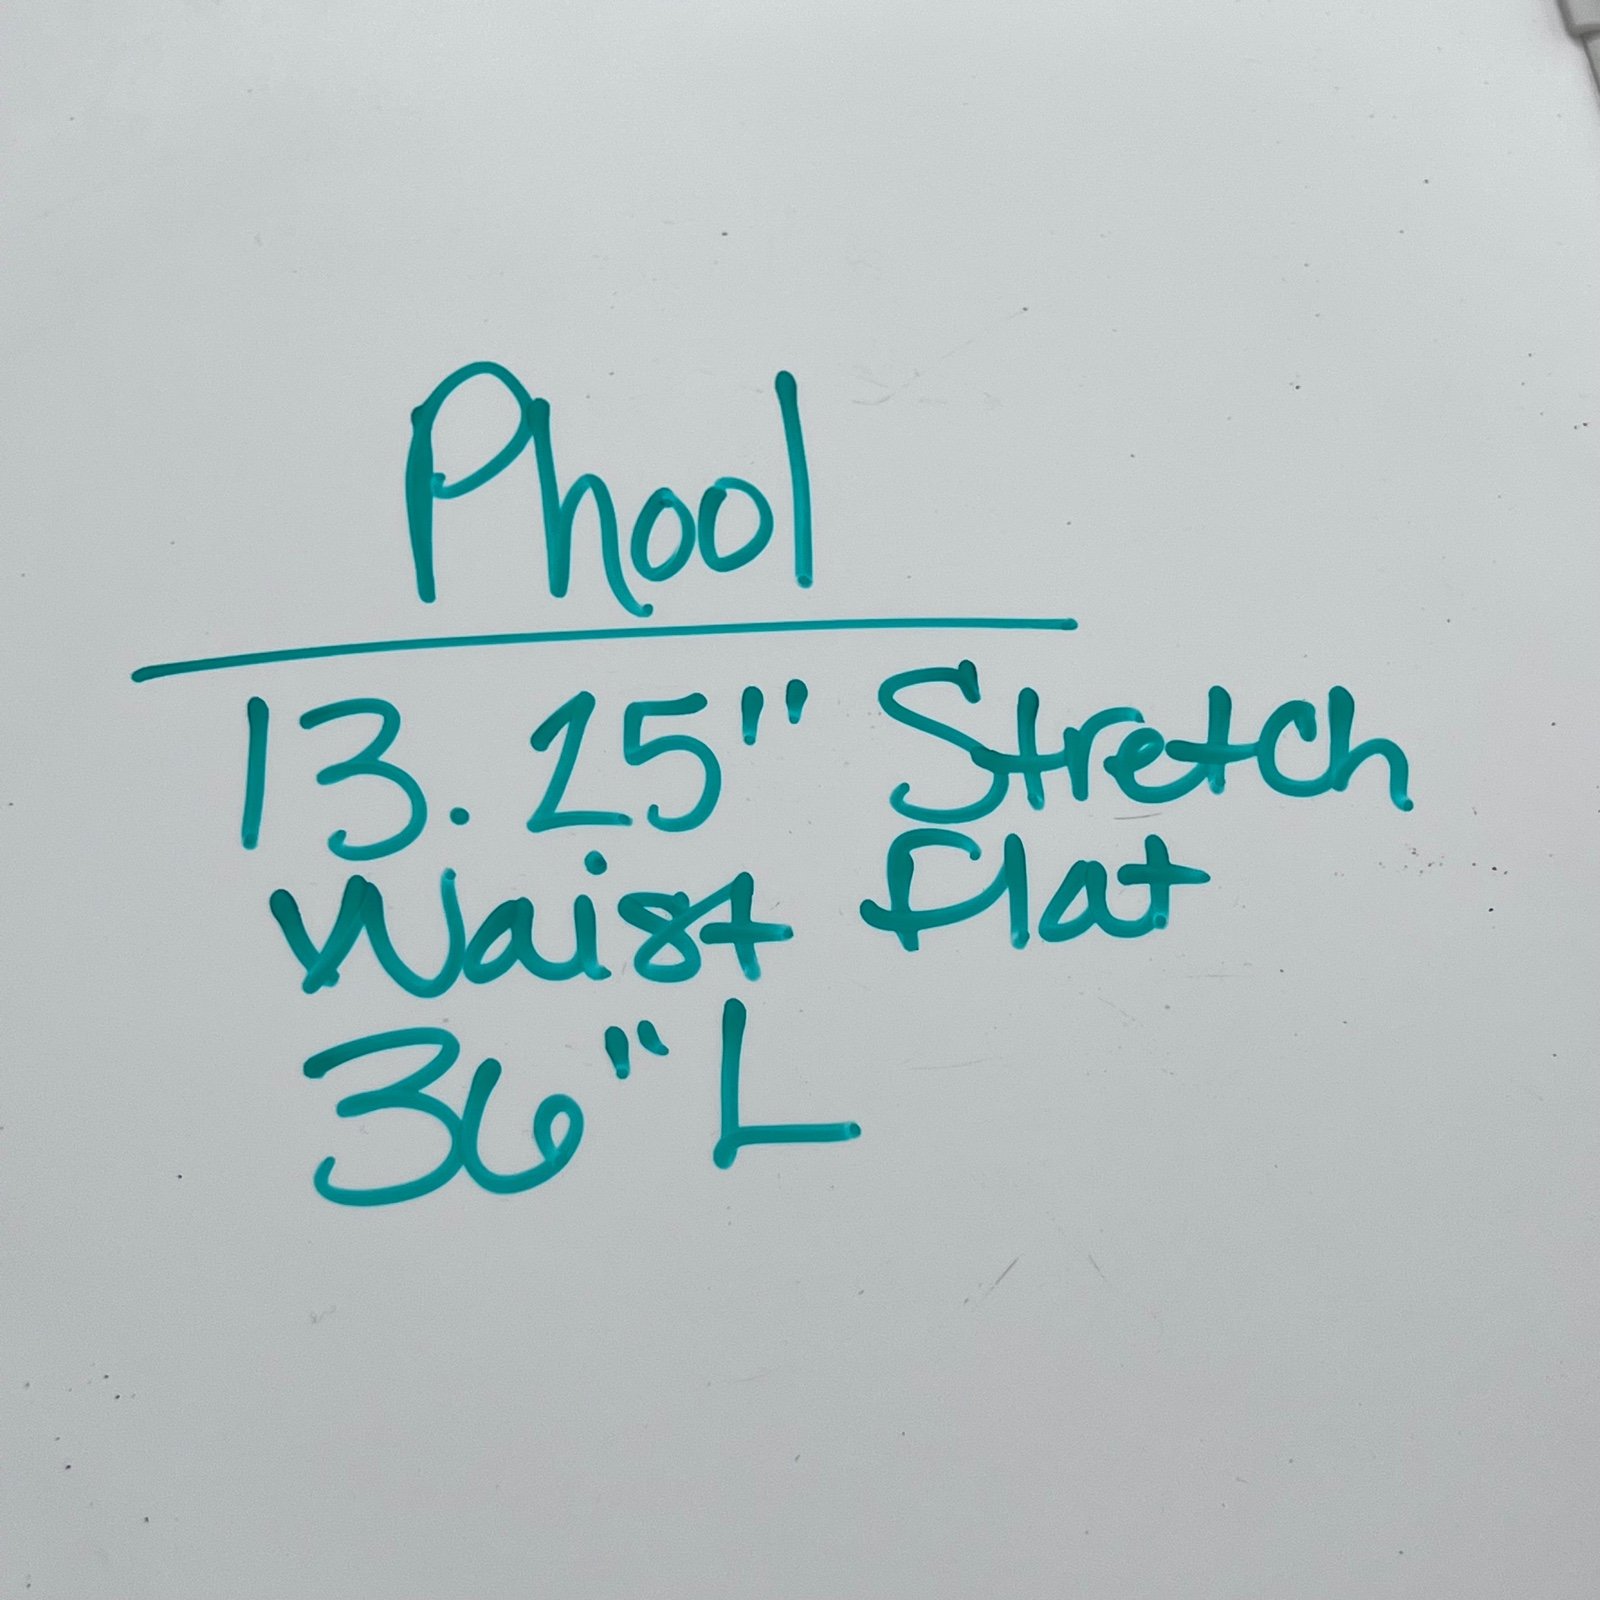 Phool
13.25" Stretch
Waist Flat
36" L